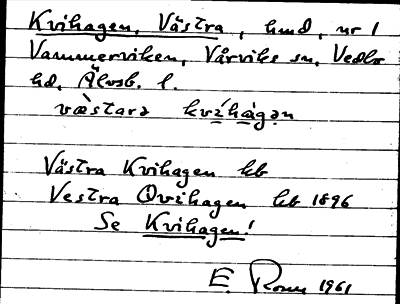 Kvihagen, Västra, hmd, nr 1
Vammerviken, Vårviks sn, Vedbo
hd, Älvsb. l.
væ̀starə kvíhàgən
Västra Kvihagen kb
Vestra Qvihagen kb 1896
Se Kvihagen!
E. 1961